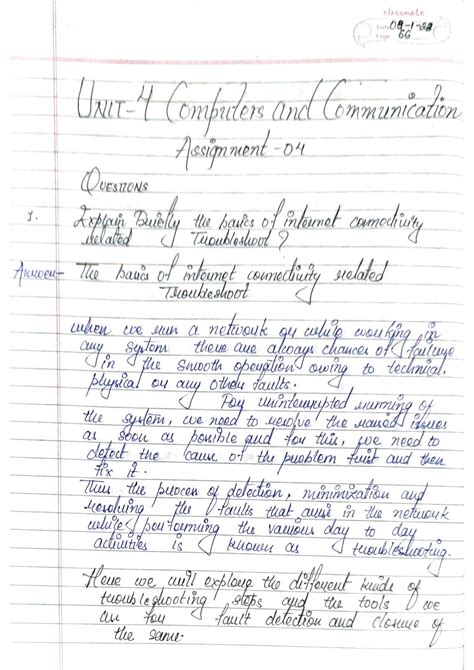 classmate
Date 04-1-22
Page 66
UNIT-4 Computers and Communication
Assignment-04
QUESTIONS
1. Explain Briefly the basics of internet connectivity
related Troubleshoot?
Answer- The basics of internet connectivity related
Troubleshoot
when we run a network or while working in
any system there are always chances of failure
in the smooth operation owing to technical,
physical or any other faults.
For uninterrupted running of
the system, we need to resolve the raised issues
as soon as possible and for this, we need to
detect the cause of the problem first and then
fix it.
Thus the process of detection, minimization and
resolving the faults that arise in the network
while performing the various day to day
activities is known as troubleshooting.
Here we will explore the different kinds of
troubleshooting steps and the tools we
for fault detection and closure of
the same.